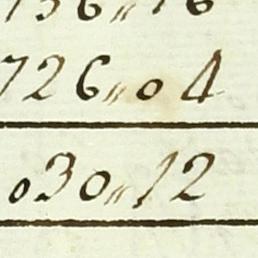 736〃16
726〃04
030〃12